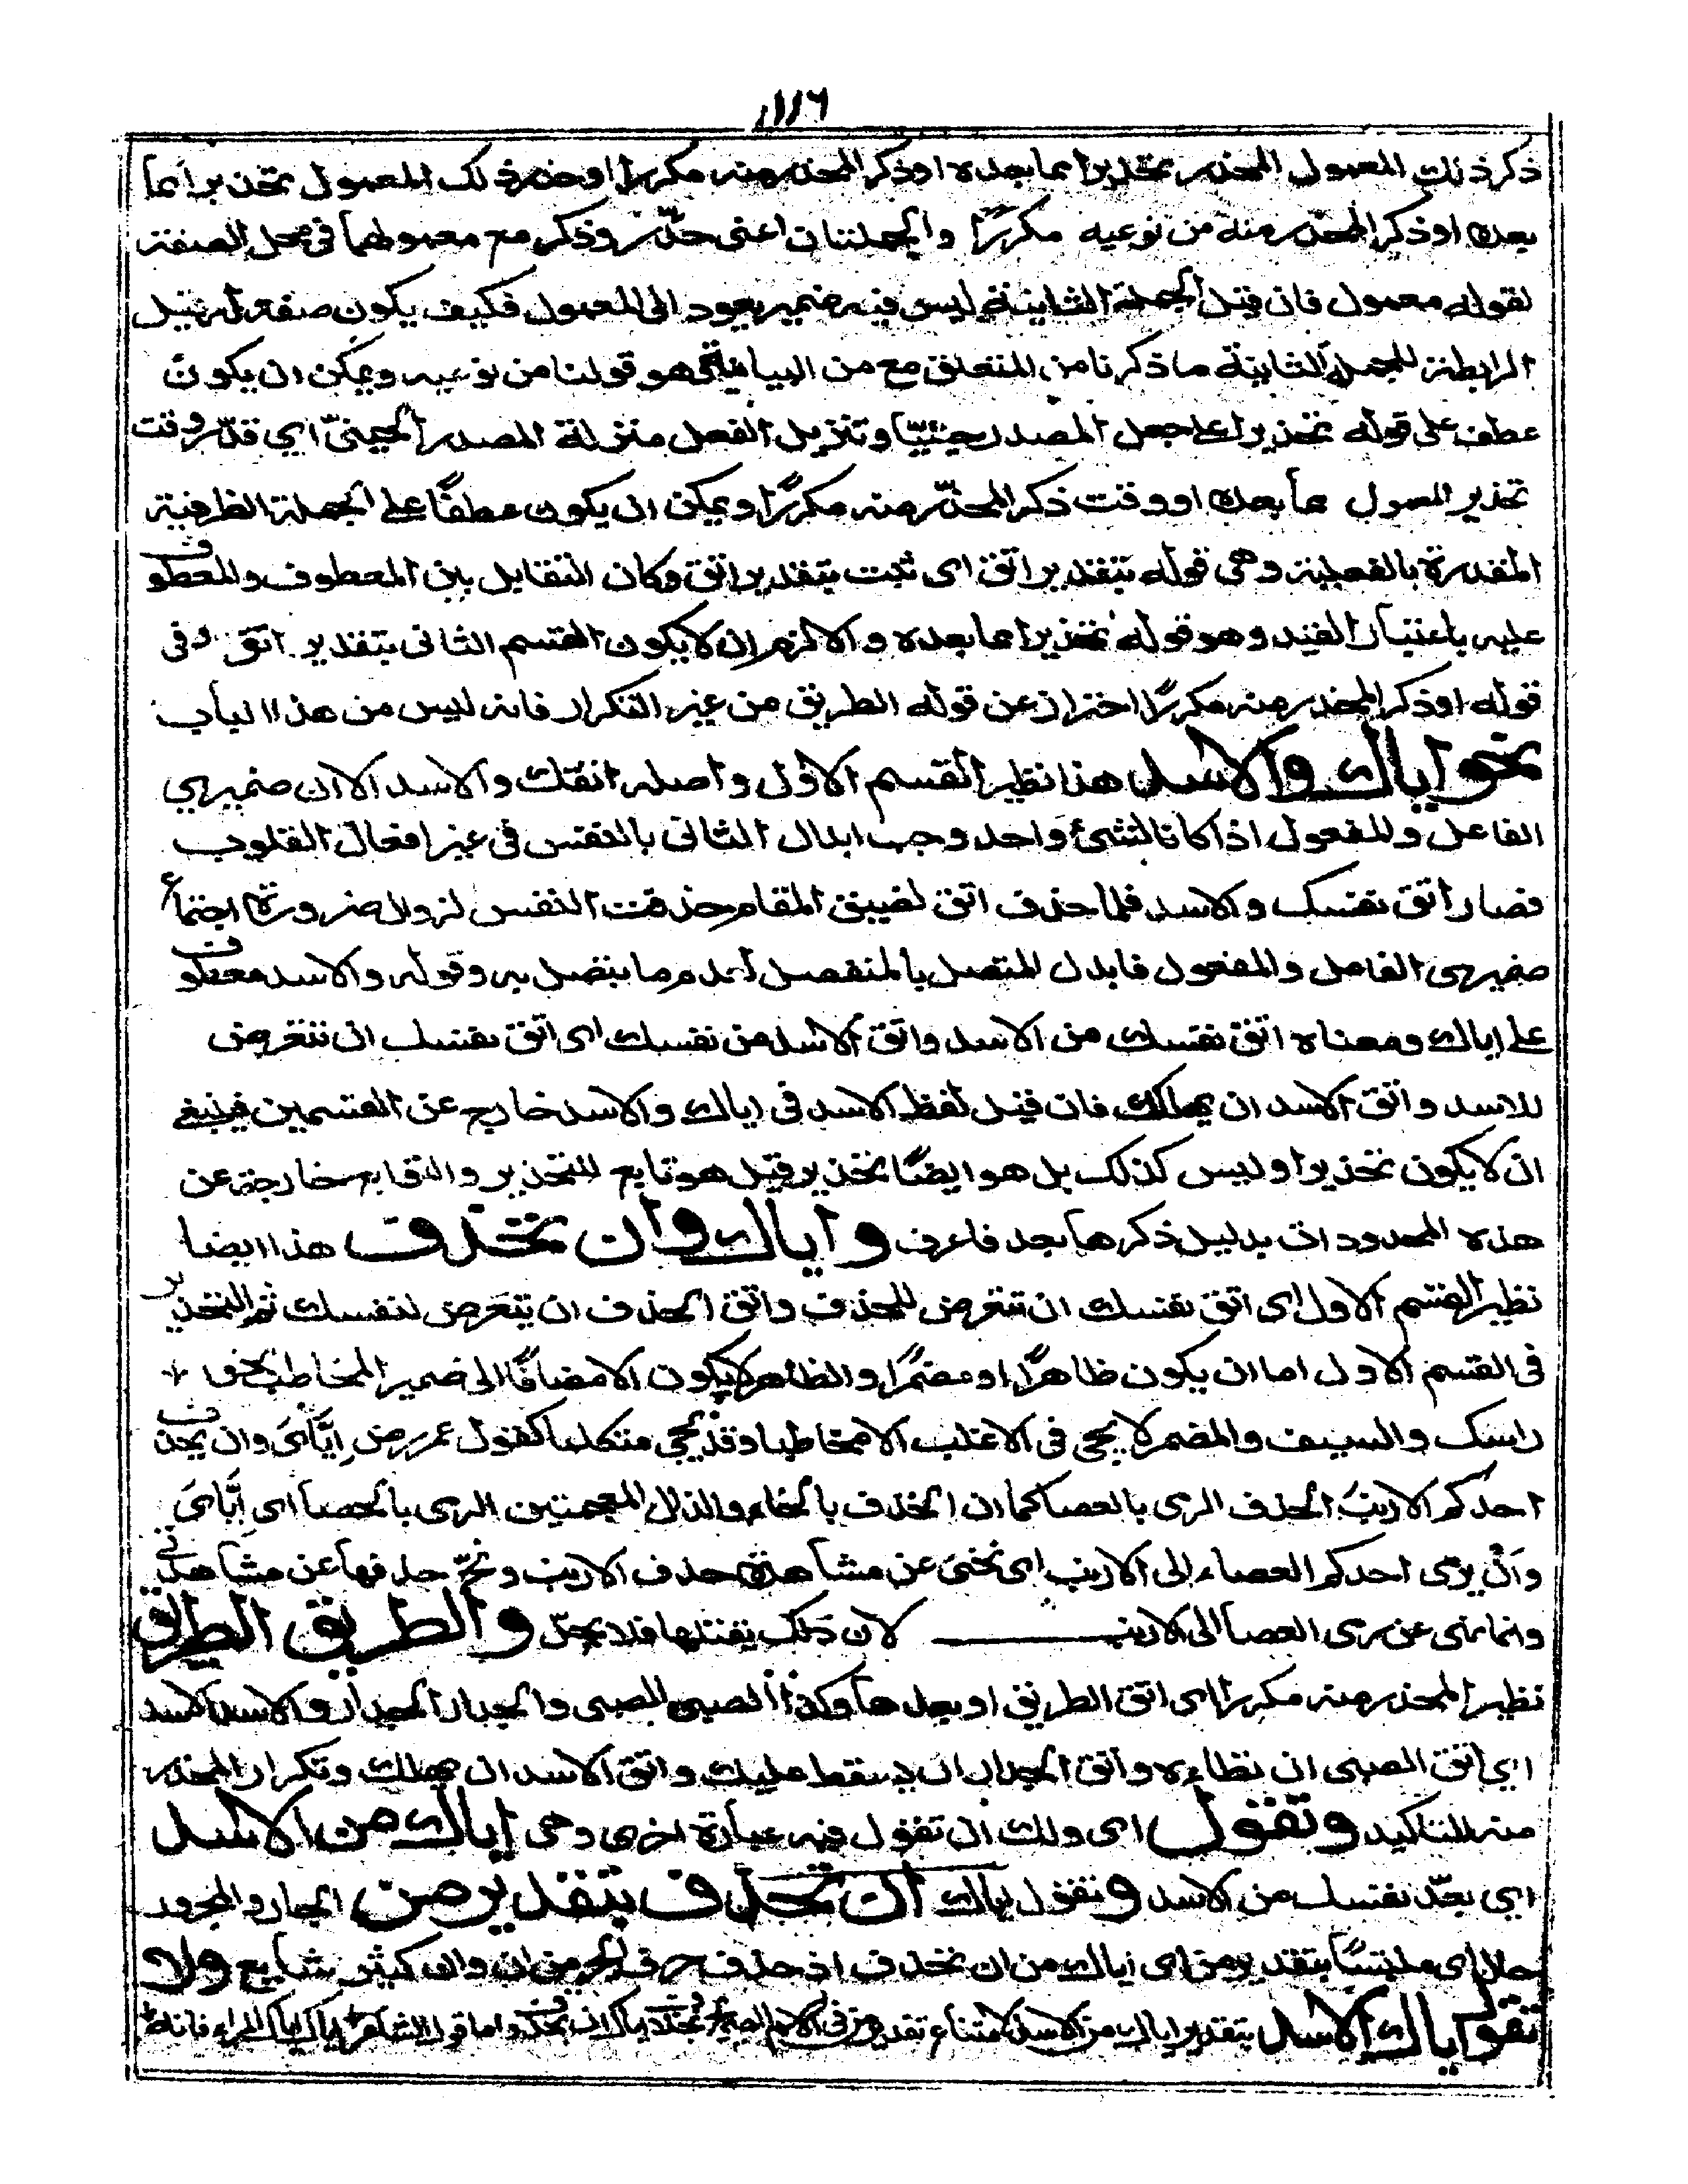 ١١١٦
ذكر ذلك المعمول المحذر تحذيرا مما بعده او ذكر المحذر منه مكررا او حذر ذلك المعمول تحذيرا مما
بعده او ذكر المحذّر منه من نوعيه مكررًا والجملتان اعنى حذّر وذكر مع معمولهما فى محل الصفة
لقوله معمول فان قيل الجملة الثانية ليس فيه ضمير يعود الى المعمول فكيف يكون صفة له قيل
الرابطة للجملة الثانية ما ذكرنا من المتعلق مع من البيانية هو قولنا من نوعيه ويمكن ان يكون
عطف على قوله تحذيرا على جعل المصدر حينيّا وتنزيل الفعل منزلة المصدر الحينىّ اي قدّر وقت
تحذير المعمول مما بعده او وقت ذكر المحذّر منه مكررًا ويمكن ان يكون عطفًا على الجملة الظرفية
المقدرة بالفعلية وهى قوله بتقدير اتق اى ثبت بتقدير اتق وكان التقابل بين المعطوف والمعطوف
عليه باعتبار القيد وهو قوله تحذيرا مما بعده والا لزم ان لا يكون القسم الثانى بتقدير اتق وفى
قوله او ذكر المحذر منه مكررًا احتراز عن قوله الطريق من غير التكرار فانه ليس من هذا الباب
نحو اياك والاسد هذا نظير القسم الاول واصله اتقك والاسد الا ان ضميري
الفاعل والمفعول اذا كانا لشئ واحد وجب ابدال الثانى بالنفس فى غير افعال القلوب
فصار اتق نفسك والاسد فلما حذف اتق لضيق المقام حذفت النفس لزوال ضرورة اجتماع
ضميرى الفاعل والمفعول فابدل المتصل بالمنفصل لعدم ما يتصل به وقوله والاسد معطوف
على اياك ومعناه اتق نفسك من الاسد واتق الاسد من نفسك اى اتق نفسك ان تتعرض
للاسد واتق الاسد ان يهلكك فان قيل لفظ الاسد فى اياك والاسد خارج عن القسمين فينبغي
ان لا يكون تحذيرا وليس كذلك بل هو ايضًا تحذير قيل هو تابع للتحذير والتوابع خارجة عن
هذه المحدودات بدليل ذكرها بعد فاعرف واياك وان تحذف هذا ايضا
نظير القسم الاول اى اتق نفسك ان تتعرض للحذف واتق الحذف ان يتعرض لنفسك ثم التحذير
فى القسم الاول اما ان يكون ظاهرًا او مضمرًا والظاهر لا يكون الا مضافًا الى ضمير المخاطب نحو
راسك والسيف والمضمر لا يجئ فى الاغلب الا مخاطبا وقد يجئ متكلما كقول عمر رض اِيَّاىَ وان يحذف
احدكم الارنبَ الحذف الرمى بالعصا كما ان الخذف بالخاء والذال المعجمتين الرمى بالحصا اى اِيَّاىَ
وَاَنْ يرمى احدكم العصاء الى الارنب اى نحّنى عن مشاهدة حذف الارنب ونحّ حذفها عن مشاهدتى
وانما نهى عن رمى العصا الى الارنب لان ذلك يقتلها فلا يحلّ والطريق الطريق
نظير المحذر منه مكررا اى اتق الطريق او بعدها وكذا الصبى الصبى والجدار الجدار والاسد الاسد
اي اتق الصبى ان تطاءه واتق الجدار ان يسقط عليك واتق الاسد ان يهلكك وتكرار المحذر
منه للتاكيد وتقول اى ولك ان تقول فيه عبارة اخرى وهى اياك من الاسد
اي بعّد نفسك من الاسد وتقول اياك ان تحذف بتقدير من الجار والمجرور
حال اى ملتبسًا بتقدير من اى اياك من ان تحذف اذ حذف حرف الجر من ان وان كثير شايع ولا
تقول اياك الاسد بتقدير اياك من الاسد لامتناع تقدير من فى الاسم الصريح واما قول الشاعر اياك اياك المراء فانه